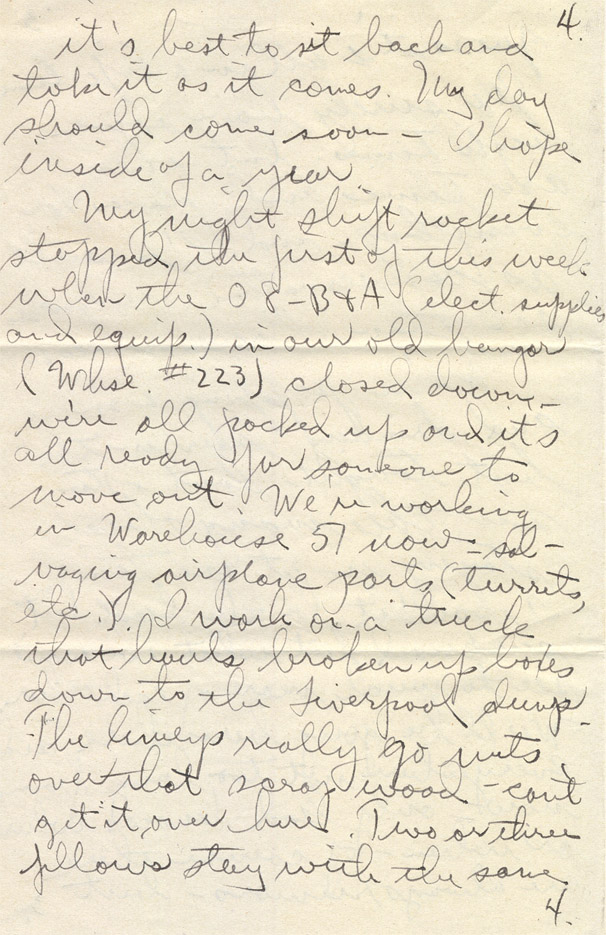 4.
it's best to sit back and
take it as it comes. My day
should come soon - I hope
inside of a year
My night shift racket
stopped the first of this week
when the 08-B&A (elect. supplies
and equip.) in our old hangar
(Whse. #223) closed down -
we're all packed up and it's
all ready for someone to
move out. We're working
in Warehouse 51 now - sal-
vaging airplane parts (turrets,
etc.). I work on a truck
that hauls broken up boxes
down to the Liverpool dump.
The limeys really go nuts
over that scrap wood - can't
get it over here. Two or three
fellows stay with the same
4.